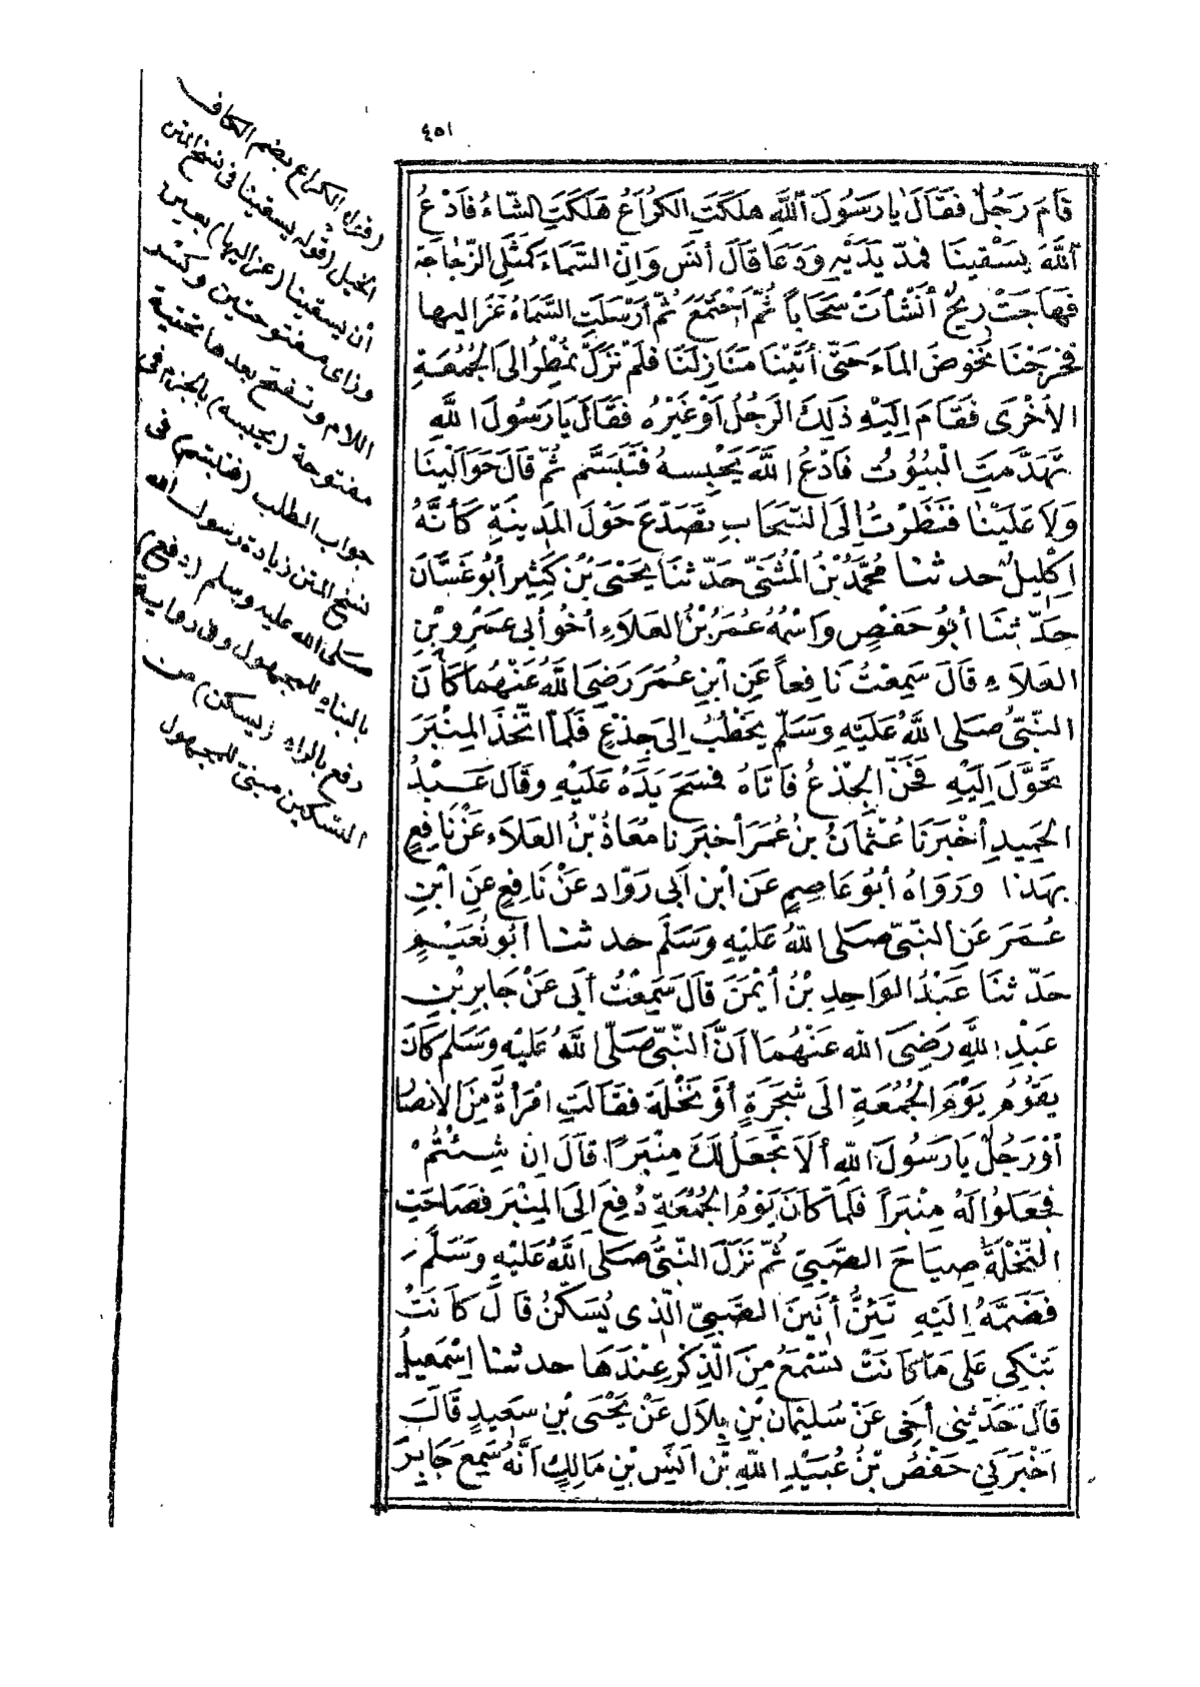 ٤٥١
قَامَ رَجُلٌ فَقَالَ يَا رَسُولَ اللَّهِ هَلَكَتِ الكُرَاعُ هَلَكَتِ الشَّاءُ فَادْعُ
اللَّهَ يَسْقِينَا فَمَدَّ يَدَيْهِ وَدَعَا قَالَ أَنَسٌ وَإِنَّ السَّمَاءَ كَمَثَلِ الزُّجَاجَة
فَهَاجَتْ رِيحٌ أَنْشَأَتْ سَحَاباً ثُمَّ اجْتَمَعَ ثُمَّ أَرْسَلَتِ السَّمَاءُ عَزَاليها
فَخَرَجْنَا نَخُوضُ المَاءَ حَتَّى أَتَيْنَا مَنَازِلَنَا فَلَمْ نَزَلْ نُمْطَرُ الى الْجُمُعَةِ
الأُخْرَى فَقَامَ إِلَيْهِ ذَلِكَ الرَّجُلُ أَوْ غَيْرُهُ فَقَالَ يَا رَسُولَ اللَّهِ
تَهَدَّمَتِ الْبُيُوتُ فَادْعُ اللَّهَ يَحْبِسهُ فَتَبَسَّمَ ثُمَّ قَالَ حَوَالَيْنَا
وَلاَ عَلَيْنَا فَنَظَرْتُ إِلَى السَّحَابِ تَصَدَّعَ حَوْلَ المَدِينَةِ كَأَنَّهُ
إِكْلِيلٌ حدثنا مُحَمَّدُ بْنُ الْمُثَنَّى حَدَّثَنَا يَحْيَى بْنُ كَثِيرٍ أَبُو غَسَّانَ
حَدَّثَنَا أَبُو حَفْصٍ وَاسْمُهُ عُمَرُ بْنُ العَلاَءِ أَخُو أَبِى عَمْرِو بْنِ
العَلاَءِ قَالَ سَمِعْتُ نَافِعاً عَنِ ابْنِ عُمَرَ رَضِيَ اللَّهُ عَنْهُمَا كَانَ
النَّبِيُّ صَلى اللَّهُ عَلَيْهِ وَسَلَّم يَخْطُبُ إِلَى جِذْعٍ فَلَمَّا اتَّخَذَ المِنْبَرَ
تَحَوَّلَ إِلَيْهِ فَحَنَّ الْجِذْعُ فَأَتَاهُ فَمَسَحَ يَدَهُ عَلَيْهِ وقَالَ عَبْدُ
الحَمِيدِ أَخْبَرَنَا عُثْمَانُ بنُ عُمَرَ أخبرنا مُعَاذُ بْنُ العَلاَء عَنْ نَافِعٍ
بِهَذا وَرَوَاهُ أَبُو عَاصِمٍ عَنِ ابْنِ أَبِى رَوَّاد عَنْ نَافِعٍ عَنِ ابْنِ
عُمَرَ عَنِ النَّبِيِّ صَلى اللَّهُ عَلَيْهِ وَسَلَّم حدثنا أَبُو نُعَيْمٍ
حَدَّثَنَا عَبْدُ الوَاحِدِ بْنُ أَيْمَنَ قَالَ سَمِعْتُ أَبِى عَنْ جَابِرِ بْنِ
عَبْدِ اللَّهِ رَضِيَ الله عَنْهُمَا أَنَّ النَّبِيَّ صَلَّى اللَّهُ عَلَيْهِ وَسَلَم كَانَ
يَقُومُ يَوْمَ الْجُمُعَةِ الَى شَجَرَةٍ أَوْ نَخْلَةٍ فَقَالَتِ امْرَأَةٌ مِنَ الأنصار
أَوْ رَجُلٌ يَا رَسُولَ اللَّهِ أَلاَ نَجْعَلُ لَكَ مِنْبَرًا قَالَ إِنْ شِئْتُمْ
فَجَعَلُوا لَهُ مِنْبَراً فَلَمَّا كَانَ يَوْمُ الْجُمُعَةِ دُفِعَ إِلَى المِنْبَرِ فَصَاحَتِ
النَّخْلَةُ صِيَاحَ الصَّبِيِّ ثُمَّ نَزَلَ النَّبِيُّ صَلى اللَّهُ عَلَيْهِ وَسَلَّمَ
فَضَمَّهُ إِلَيْهِ تَئِنُّ أَنِينَ الصَّبِيِّ الَّذِى يُسَكَّنُ قَالَ كَانَتْ
تَبْكِي عَلَى مَا كَانَتْ تَسْمَعُ مِنَ الذِّكْرِ عِنْدَهَا حدثنا إِسْمَعِيلُ
قَالَ حَدَّثَنِى أَخِى عَنْ سُلَيْمَانَ بْنِ بِلاَلٍ عَنْ يَحْيَى بْنِ سَعِيدٍ قَالَ
أَخْبَرَنِي حَفْصُ بْنُ عُبَيْدِ اللَّهِ بْنِ أَنَسِ بْنِ مَالِكٍ أَنَّهُ سَمِعَ جَابِرَ
(قوله الكراع) بضم الكاف
الخيل (قوله يسقينا) في نسخ المتن
أن يسقينا (عزاليها) بعين
وزاى مفتوحتين وكسر
اللام وتفتح بعدها تحتية
مفتوحة (يحبسه) بالجزم فى
جواب الطلب (فتبسم) فى
نسخ المتن زيادة رسول الله
صلى الله عليه وسلم (دفع)
بالبناء للمجهول وفى رواية
رفع بالراء (يسكن) من
التسكين مبنى للمجهول